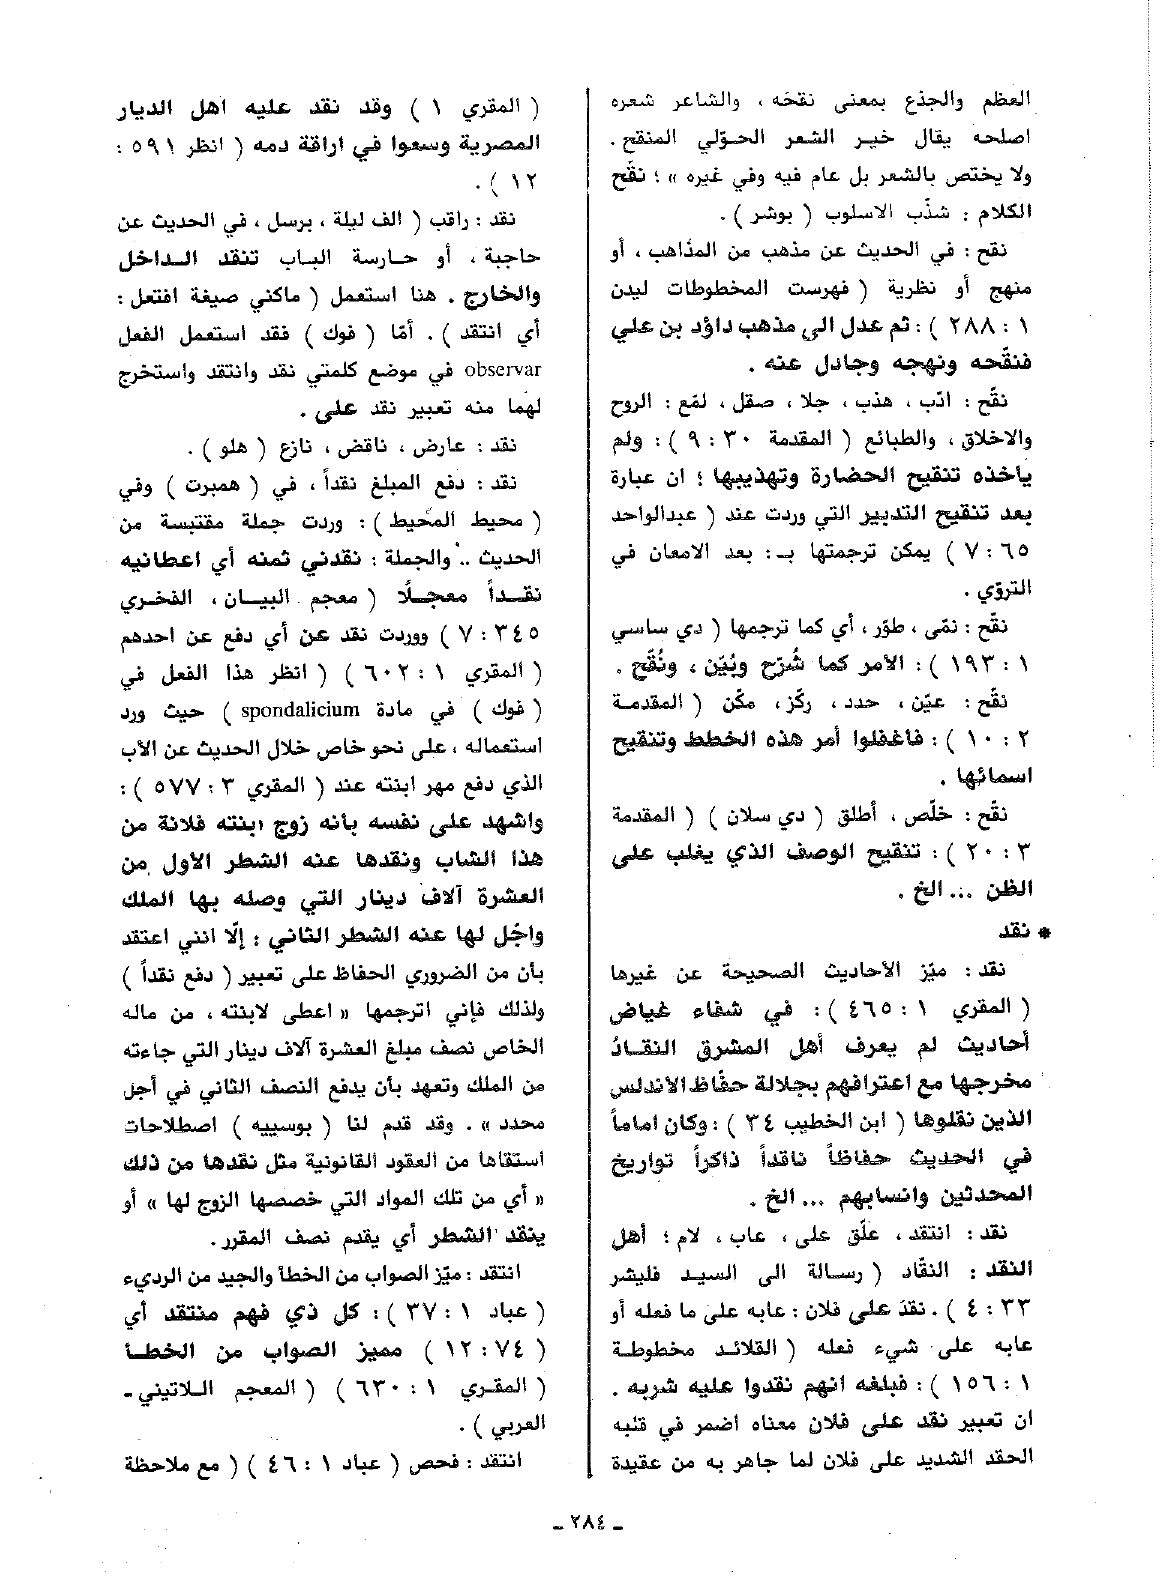 العظم والجذع بمعنى نقحَه ، والشاعر شعره
اصلحه يقال خير الشعر الحَوْلي المنقح .
ولا يختص بالشعر بل عام فيه وفي غيره » ؛ نقّح
الكلام : شذّب الاسلوب ( بوشر ) .
نقح : في الحديث عن مذهب من المذاهب ، أو
منهج أو نظرية ( فهرست المخطوطات ليدن
١ : ٢٨٨ ) : ثم عدل الى مذهب داؤد بن علي
فنقّحه ونهجه وجادل عنه .
نقّح : ادّب ، هذب ، جلا ، صقل ، لمّع : الروح
والاخلاق ، والطبائع ( المقدمة ٣٠ : ٩ ) : ولم
ياخذه تنقيح الحضارة وتهذيبها ؛ ان عبارة
بعد تنقيح التدبير التي وردت عند ( عبدالواحد
٦٥ : ٧ ) يمكن ترجمتها بـ : بعد الامعان في
التروّي .
نقّح : نمّى ، طوّر ، أي كما ترجمها ( دي ساسي
١ : ١٩٣ ) : الامر كما شُرّح وبُيّن ، ونُقّح .
نقّح : عيّن ، حدد ، ركّز ، مكّن ( المقدمة
٢ : ١٠ ) : فاغفلوا أمر هذه الخطط وتنقيح
اسمائها .
نقّح : خلّص ، أطلق ( دي سلان ) ( المقدمة
٣ : ٢٠ ) : تنقيح الوصف الذي يغلب على
الظن ... الخ .
* نقد
نقد : ميّز الأحاديث الصحيحة عن غيرها
( المقري ١ : ٤٦٥ ) : في شفاء غياض
أحاديث لم يعرف أهل المشرق النقادُ
مخرجها مع اعترافهم بجلالة حفّاظ الاندلس
الذين نقلوها ( ابن الخطيب ٣٤ ) : وكان اماماً
في الحديث حفاظاً ناقداً ذاكراً تواريخ
المحدثين وانسابهم ... الخ .
نقد : انتقد ، علّق على ، عاب ، لام ؛ أهل
النقد : النقّاد ( رسالة الى السيد فليشر
٣٣ : ٤ ) . نقدَ على فلان : عابه على ما فعله أو
عابه على شيء فعله ( القلائد مخطوطة
١ : ١٥٦ ) : فبلغه انهم نقدوا عليه شربه .
ان تعبير نقد على فلان معناه اضمر في قلبه
الحقد الشديد على فلان لما جاهر به من عقيدة
( المقري ١ ) وقد نقد عليه اهل الديار
المصرية وسعوا في اراقة دمه ( انظر ٥٩١ :
١٢ ) .
نقد : راقب ( الف ليلة ، برسل ، في الحديث عن
حاجبة ، أو حارسة الباب تنقد الداخل
والخارج . هنا استعمل ( ماكني صيغة افتعل :
أي انتقد ) . أمّا ( فوك ) فقد استعمل الفعل
observar في موضع كلمتي نقد وانتقد واستخرج
لهما منه تعبير نقد على .
نقد : عارض ، ناقض ، نازع ( هلو ) .
نقد : دفع المبلغ نقداً ، في ( همبرت ) وفي
( محيط المحيط ) : وردت جملة مقتبسة من
الحديث .. والجملة : نقدني ثمنه أي اعطانيه
نقداً معجلًا ( معجم البيان ، الفخري
٣٤٥ : ٧ ) ووردت نقد عن أي دفع عن احدهم
( المقري ١ : ٦٠٢ ) ( انظر هذا الفعل في
( فوك ) في مادة spondalicium ) حيث ورد
استعماله ، على نحو خاص خلال الحديث عن الأب
الذي دفع مهر ابنته عند ( المقري ٣ : ٥٧٧ ) :
واشهد على نفسه بأنه زوج ابنته فلانة من
هذا الشاب ونقدها عنه الشطر الأول من
العشرة آلاف دينار التي وصله بها الملك
واجّل لها عنه الشطر الثاني : إلّا انني اعتقد
بأن من الضروري الحفاظ على تعبير ( دفع نقداً )
ولذلك فإني اترجمها « اعطى لابنته ، من ماله
الخاص نصف مبلغ العشرة آلاف دينار التي جاءته
من الملك وتعهد بأن يدفع النصف الثاني في أجل
محدد » . وقد قدم لنا ( بوسييه ) اصطلاحات
استقاها من العقود القانونية مثل نقدها من ذلك
« أي من تلك المواد التي خصصها الزوج لها » أو
ينقد الشطر أي يقدم نصف المقرر .
انتقد : ميّز الصواب من الخطأ والجيد من الرديء
( عباد ١ : ٣٧ ) : كل ذي فهم منتقد أي
( ٧٤ : ١٢ ) مميز الصواب من الخطأ
( المقري ١ : ٦٣٠ ) ( المعجم اللاتيني -
العربي ) .
انتقد : فحص ( عباد ١ : ٤٦ ) ( مع ملاحظة
ـ ٢٨٤ ـ